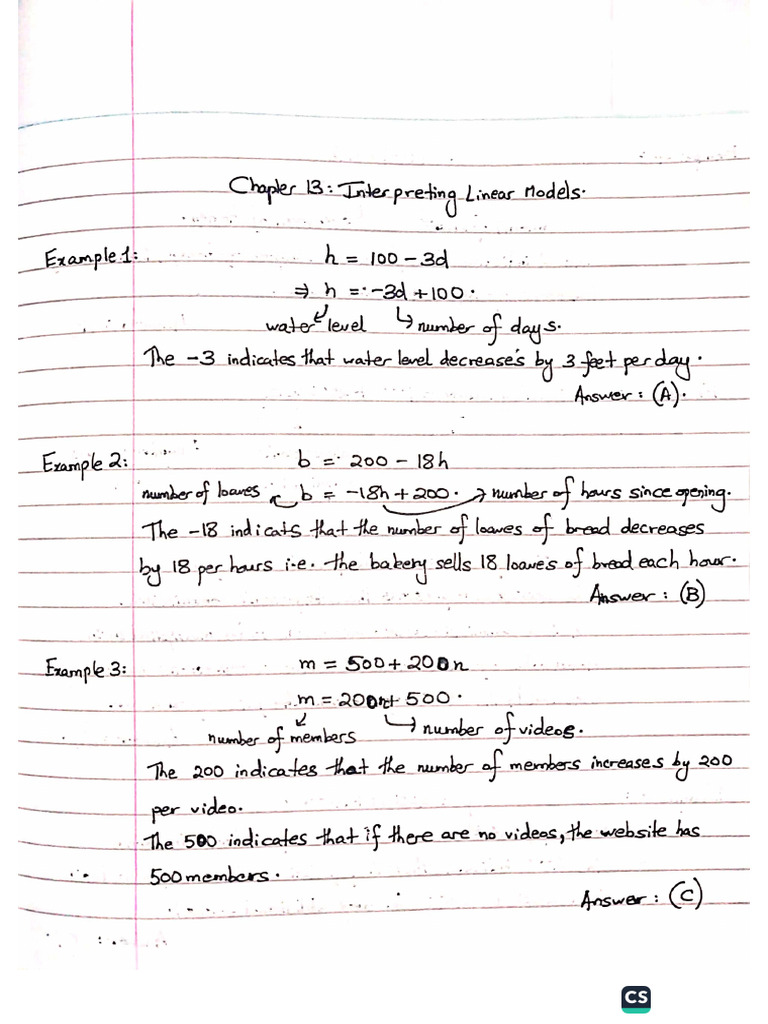 Chapter 13: Interpreting Linear Models.
Example 1: h = 100 - 3d
⇒ h = -3d + 100.
water level number of days.
The -3 indicates that water level decreases by 3 feet per day.
Answer: (A).
Example 2: b = 200 - 18h
number of loaves b = -18h + 200. number of hours since opening.
The -18 indicats that the number of loaves of bread decreases
by 18 per hours i.e. the bakery sells 18 loaves of bread each hour.
Answer: (B)
Example 3: m = 500 + 200n
m = 200n + 500.
number of members number of videos.
The 200 indicates that the number of members increases by 200
per video.
The 500 indicates that if there are no videos, the website has
500 members.
Answer: (C)
CS